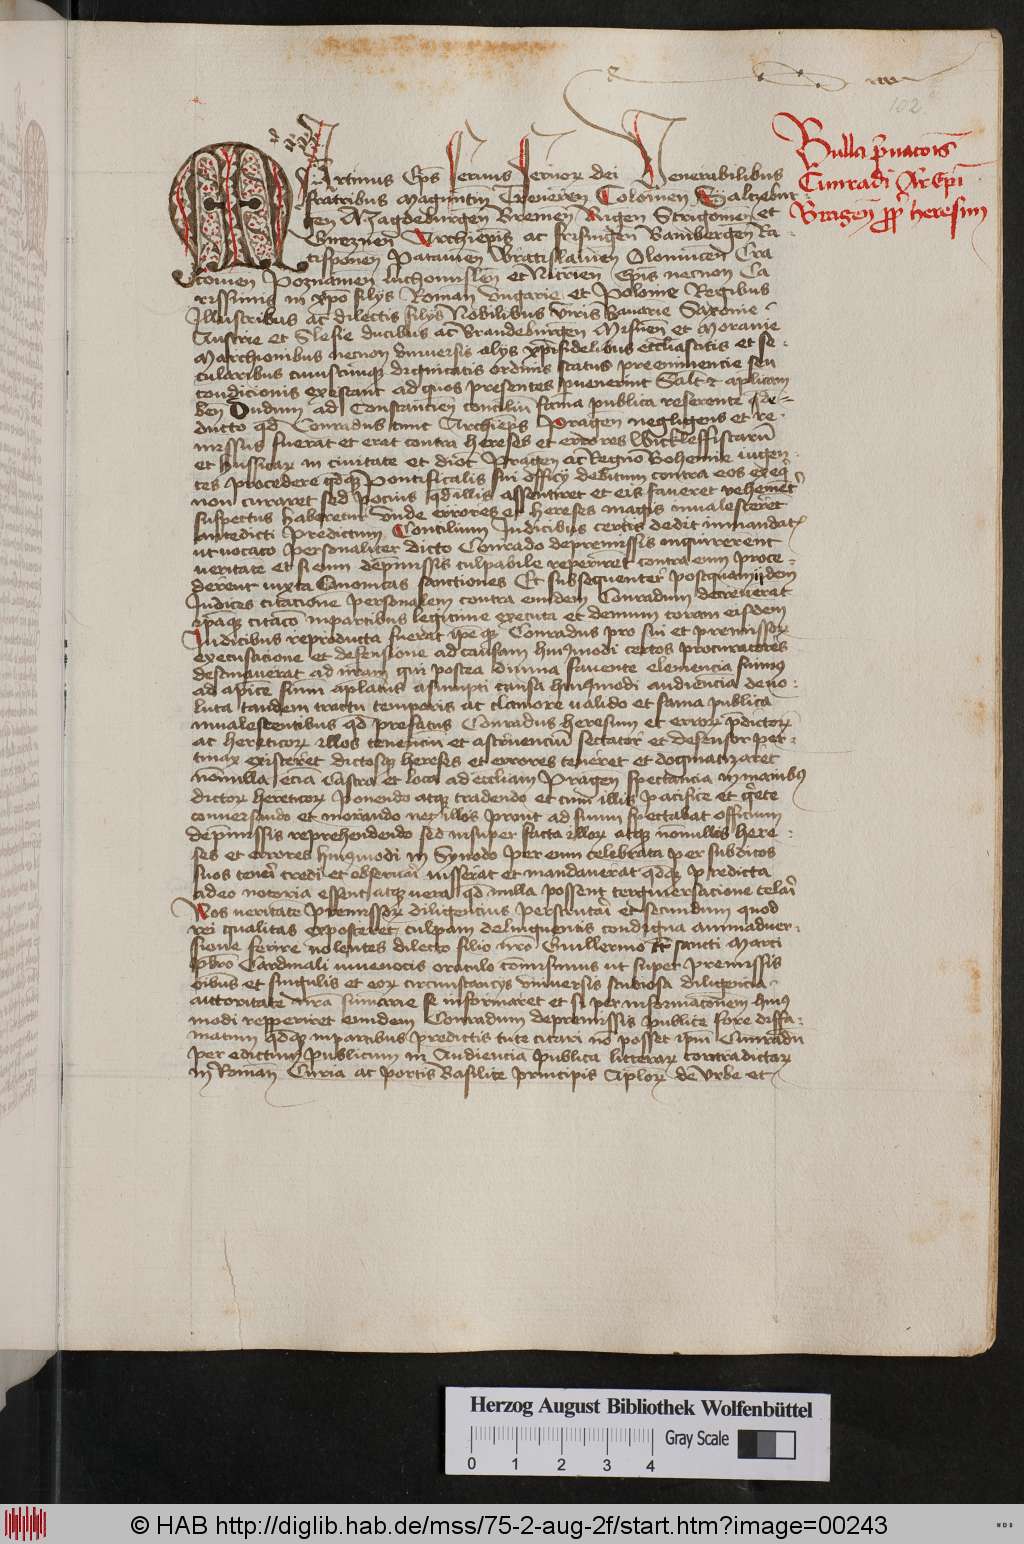 102
Bulla p̄uacōis
Cunradi Ar̄Epī
Pragen̄ ꝓpt̄ heresim
Martinus Ep̄s seruus seruoꝝ dei Venerabilibus
fratribus Maguntin̄ Treueren̄ Colonien̄ Saltzebur
gen̄ Magdeburgen̄ Bremen̄ Rigen̄ Strigonien̄ et
Gneznen̄ Archiep̄is ac frisingen̄ Bambergen̄ Ra
tisponen̄ Patauien̄ Wratislauien̄ Olomucen̄ Cra
couien̄ Poznanien̄ luthomislen̄ et Nitrien̄ Ep̄is necnon Ca
rissimis in xp̄o filijs Roman̄ Vngarie et Polonie Regibus
Illustribus ac dilectis filijs Nobilibus viris Bauarie Saxonie
Austrie et Slesie ducibus ac Brandeburgen̄ Misnen̄ et Morauie
Marchionibus necnon vniuersis alijs xp̄ifidelibus eccl̄iasticis et se
cularibus cuiuscunqꝫ dignitatis ordinis status preeminencie seu
condicionis existant ad quos presentes puenerint Sal̄t ⁊ aplicam
ben̄ Dudum ad Constancien̄ conciliū fama publica referente de
ducto qd Conradus tunc Archiep̄s Pragen̄ negligens et re
missus fuerat et erat contra hereses et errores Wickleffistarū
et hussitaꝝ in ciuitate et dioc̄ Pragen̄ ac Regno Bohemie uigen
tes procedere qdqꝫ Pontificalis sui officij debitum contra eos exeq̄
non curaret sed pocius qd illis assentiret et eis faueret vehemēt̄
suspectus haberetur Vnde errores et hereses magis inualesceret
antedicti Predictum Concilium Iudicibus certis dedit in mandat̄
ut uocato personaliter dicto Conrado de premissis inquirerent
ueritate et si eum de p̄missis culpabile reperiret contra eum proce
derent iuxta Canonicas sanctiones Et subsequenter postquam ijdem
Iudices citacione personalem contra eundem Conradum decreuerat
ip̄aqꝫ citacō in partibus legitime executa et demum coram eisdem
Iudicibus reproducta fuerat ip̄e qꝫ Conradus pro sui et premissoꝝ
excusacione et defensione ad causam hm̄oi certos procuratores
destinauerat ad nr̄am qui postea diuina fauente clemencia fuimꝰ
ad apice summi ap̄latus assumpti causa hm̄oi audiencia deuo
luta tandem tractu temporis ac clamore ualido et fama publica
inualescentibus qd prefatus Conradus heresum et erroꝝ p̄dictoꝝ
ac hereticoꝝ illos tenenciū et astruenciū sectator et defensor per
tinax existeret dictosqꝫ hereses et errores teneret et dogmatizaret
nōnulla ecia Castra et loca ad eccl̄iam Pragen̄ spectancia in manibꝰ
dictoꝝ hereticoꝝ ponendo atqꝫ tradendo et cum illis pacifice et q̄ete
conuersando et morando nec illos prout ad suum spectabat officium
de p̄missis reprehendendo sed insuper facta illoꝝ atqꝫ nonullos here
ses et errores hm̄oi in Synodo per eum celebrata per subditos
suos teneri credi et obseruari iusserat et mandauerat qdqꝫ predicta
adeo notoria essent atqꝫ uera qd nulla possent tergiuersacione celari
Nos ueritate premissoꝝ diligencius perscrutari et secundum quod
rei qualitas exposceret culpam delinquentis condigna animaduer
sione ferire uolentes dilecto filio nr̄o Guillermo tt̄ sancti Marci
p̄bro Cardinali uiueuocis oraculo com̄isimus ut super premissis
oībus et singulis et eoꝝ circumstancijs vniuersis studiosa diligencia
auctoritate nr̄a summarie se informaret et si per informacōnem hm̄oi
modi repperiret eundem Conradum de premissis publice fore diffa
matum qdqꝫ in partibus predictis tute citari nō posset ip̄m Cunradū
per edictum publicum in Audiencia publica litteraꝝ contradictaꝝ
in Roman̄ Curia ac portis Basilice principis Ap̄loꝝ de Vrbe et
Herzog August Bibliothek Wolfenbüttel
Gray Scale
0 1 2 3 4
© HAB http://diglib.hab.de/mss/75-2-aug-2f/start.htm?image=00243